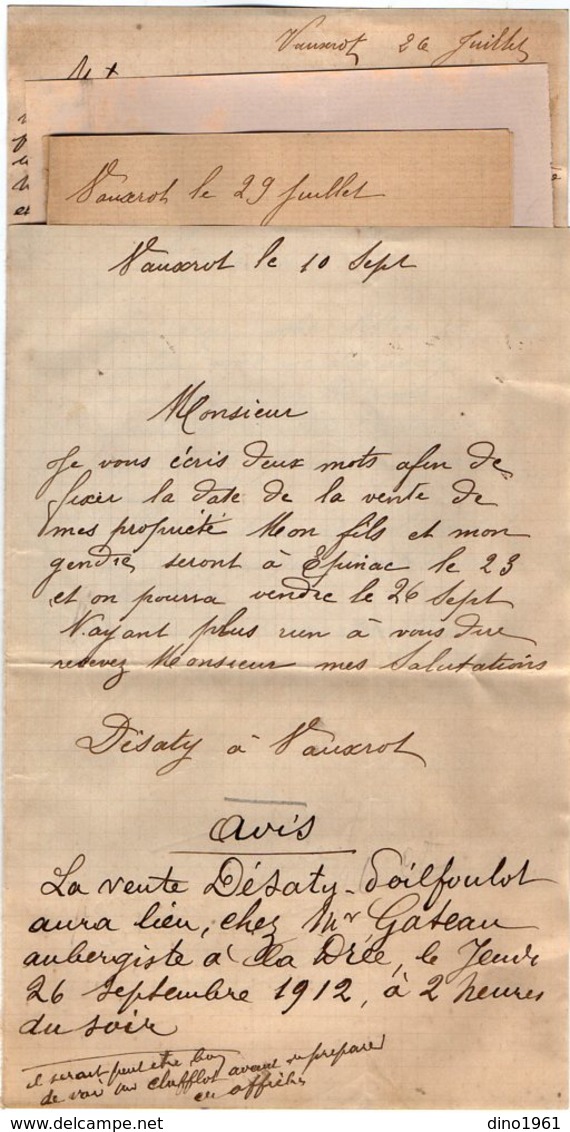 Vauxrot 26 Juillet
Vauxrot le 29 Juillet
Vauxrot le 10 Sept
Monsieur
Je vous écris deux mots afin de
fixer la date de la vente de
mes propriété Mon fils et mon
gendre seront à Epinac le 23
et on pourra vendre le 26 Sept
N'ayant plus rien à vous dire
recevez Monsieur mes Salutations
Désaty à Vauxrot
Avis
La vente Désaty-Doilfoulot
aura lieu, chez Mr Gateau
aubergiste à La Drée, le Jeudi
26 septembre 1912, à 2 heures
du soir
il serait peut être bon
de voir avant préparer
affiches
dino1961